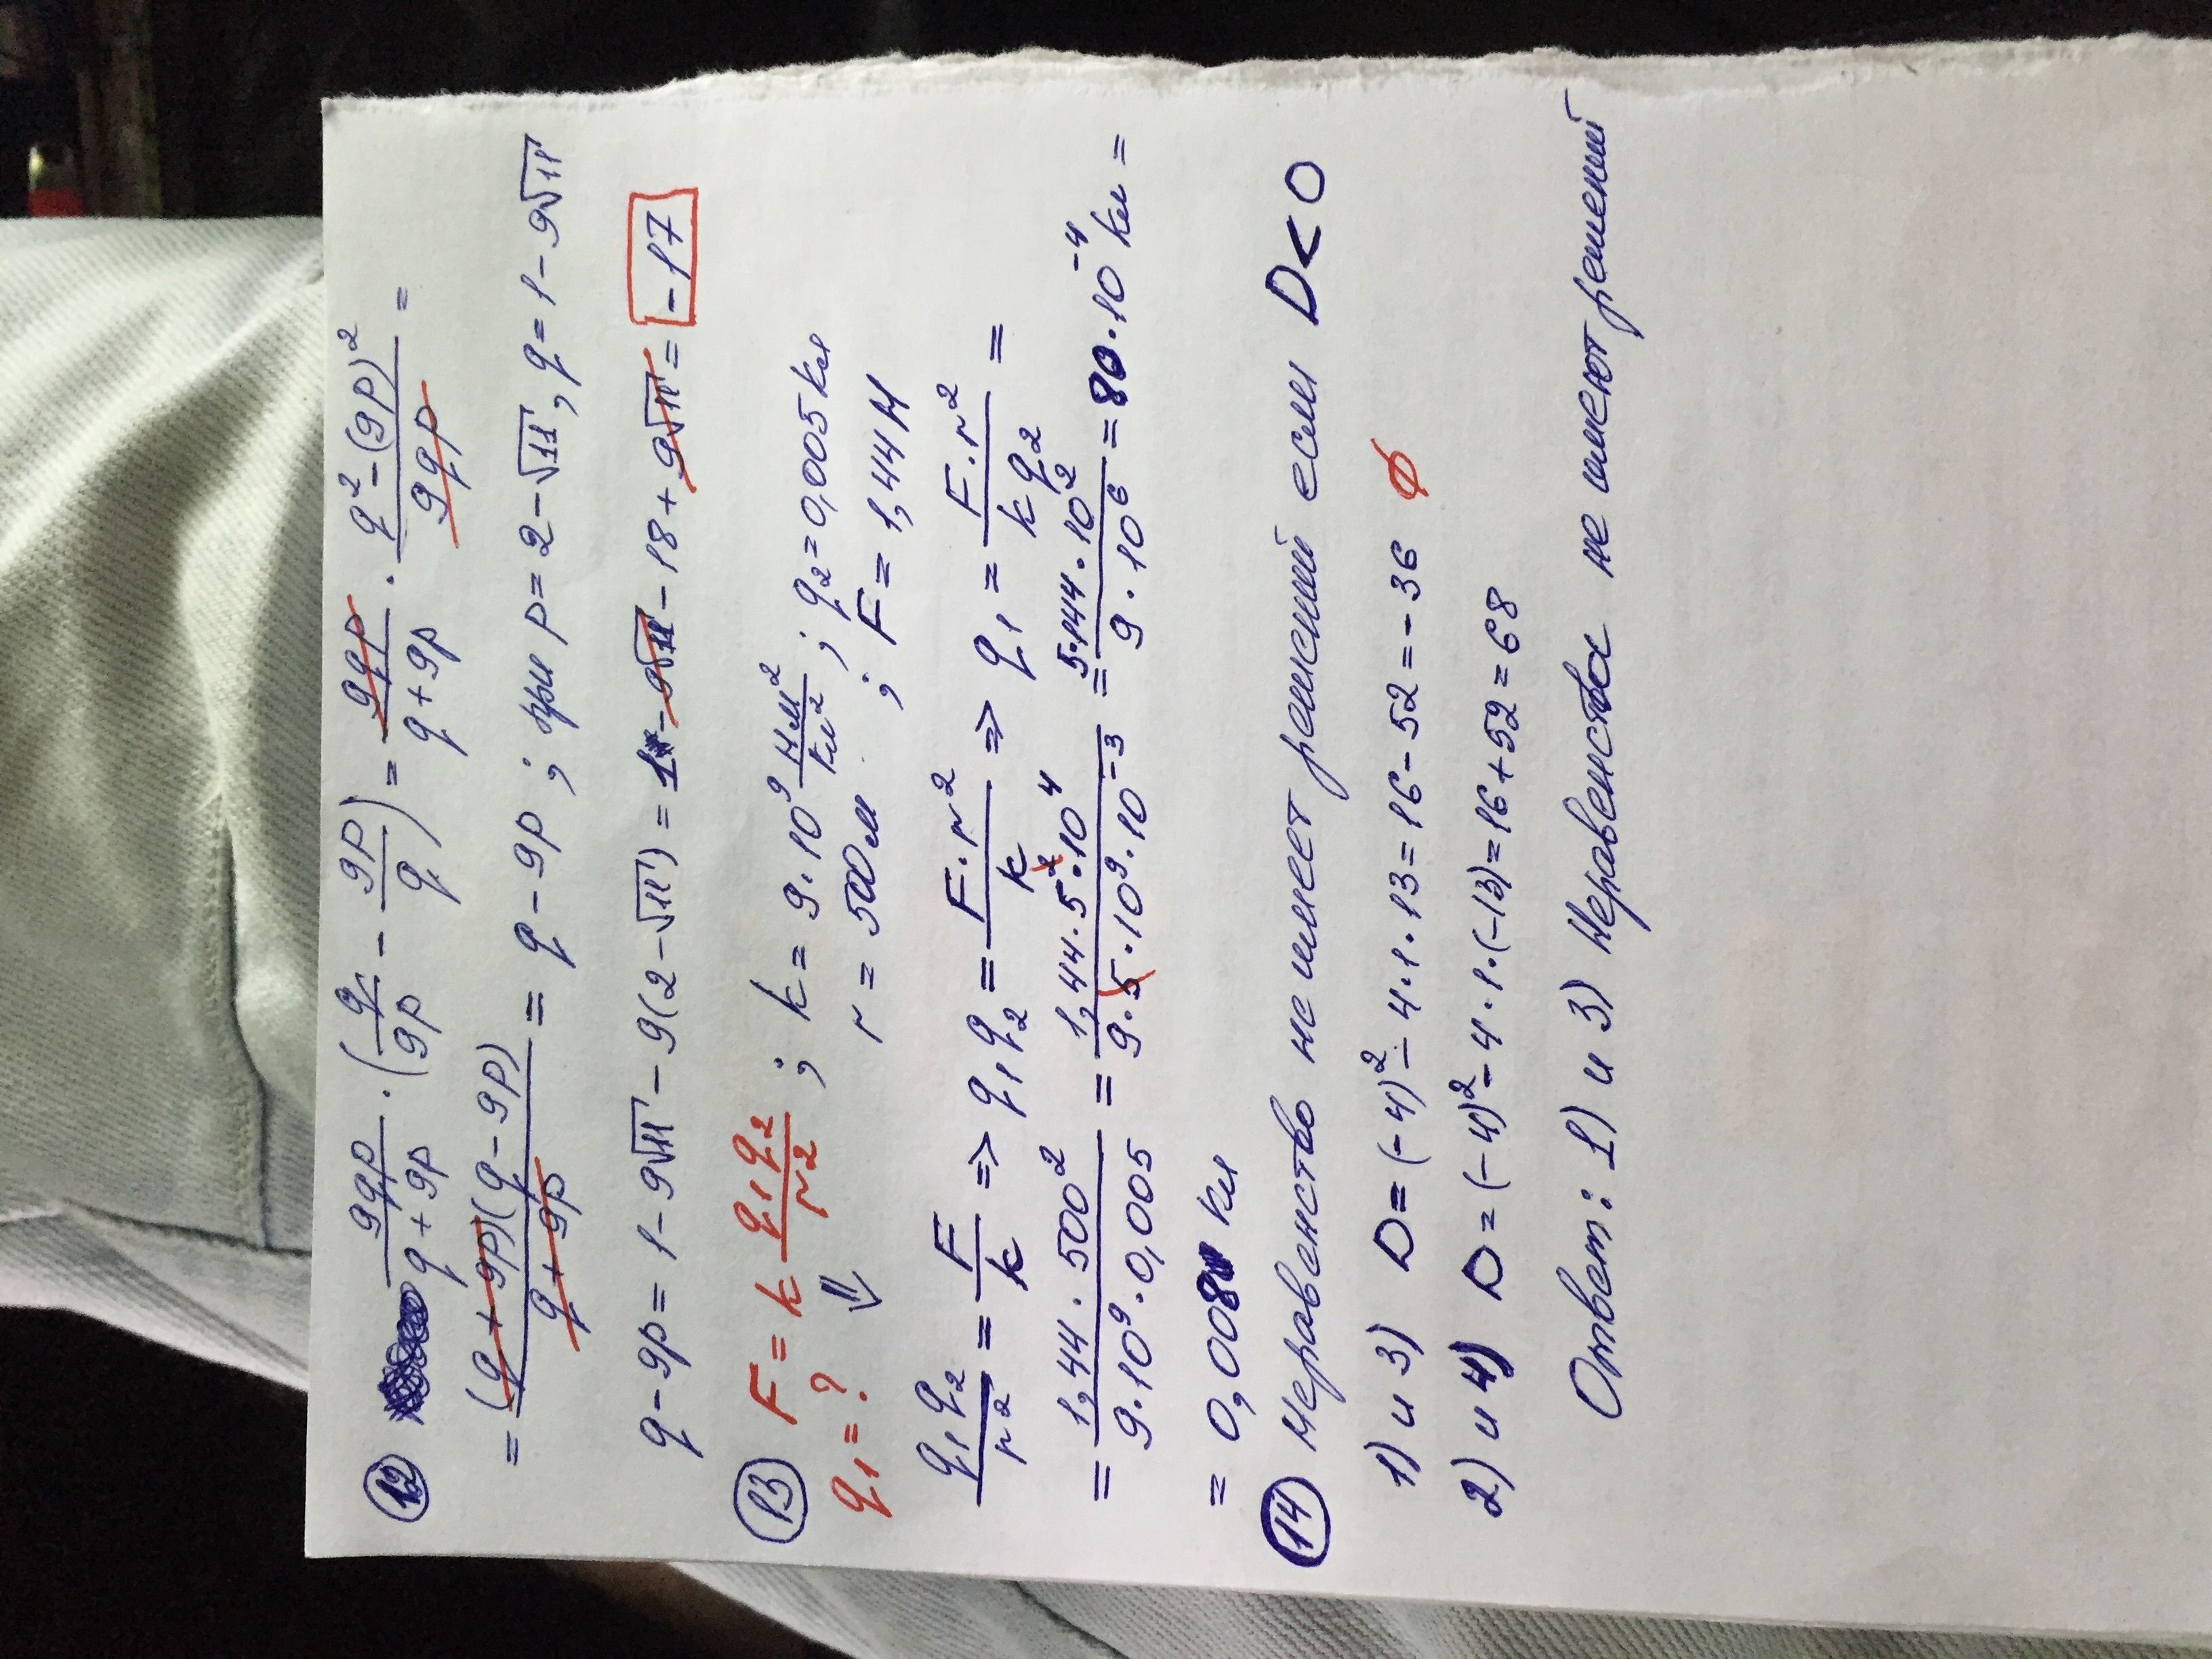 12 9qp/(q + 9p) · (q/9p - 9p/q) = 9qp/(q + 9p) · (q² - (9p)²)/9qp =
= (q + 9p)(q - 9p)/(q + 9p) = q - 9p ; при p = 2 - √11, q = 1 - 9√11
q - 9p = 1 - 9√11 - 9(2 - √11) = 1 - 9√11 - 18 + 9√11 = -17
13 F = k q₁q₂/r² ; k = 9 · 10⁹ Нм²/Кл² ; q₂ = 0,005 Кл
q₁ = ? ⇓ r = 500 м ; F = 1,44 Н
q₁q₂/r² = F/k => q₁q₂ = F·r²/k => q₁ = F·r²/(k q₂) =
= 1,44 · 500²/(9·10⁹·0,005) = 1,44 · 5² · 10⁴/(9·5·10⁹·10⁻³) = 5·144·10²/(9·10⁶) = 80·10⁻⁴ Кл =
= 0,008 Кл
14 Неравенство не имеет решений если D < 0
1) и 3) D = (-4)² - 4·1·13 = 16 - 52 = - 36 ∅
2) и 4) D = (-4)² - 4·1·(-13) = 16 + 52 = 68
Ответ: 1) и 3) Неравенства не имеют решений